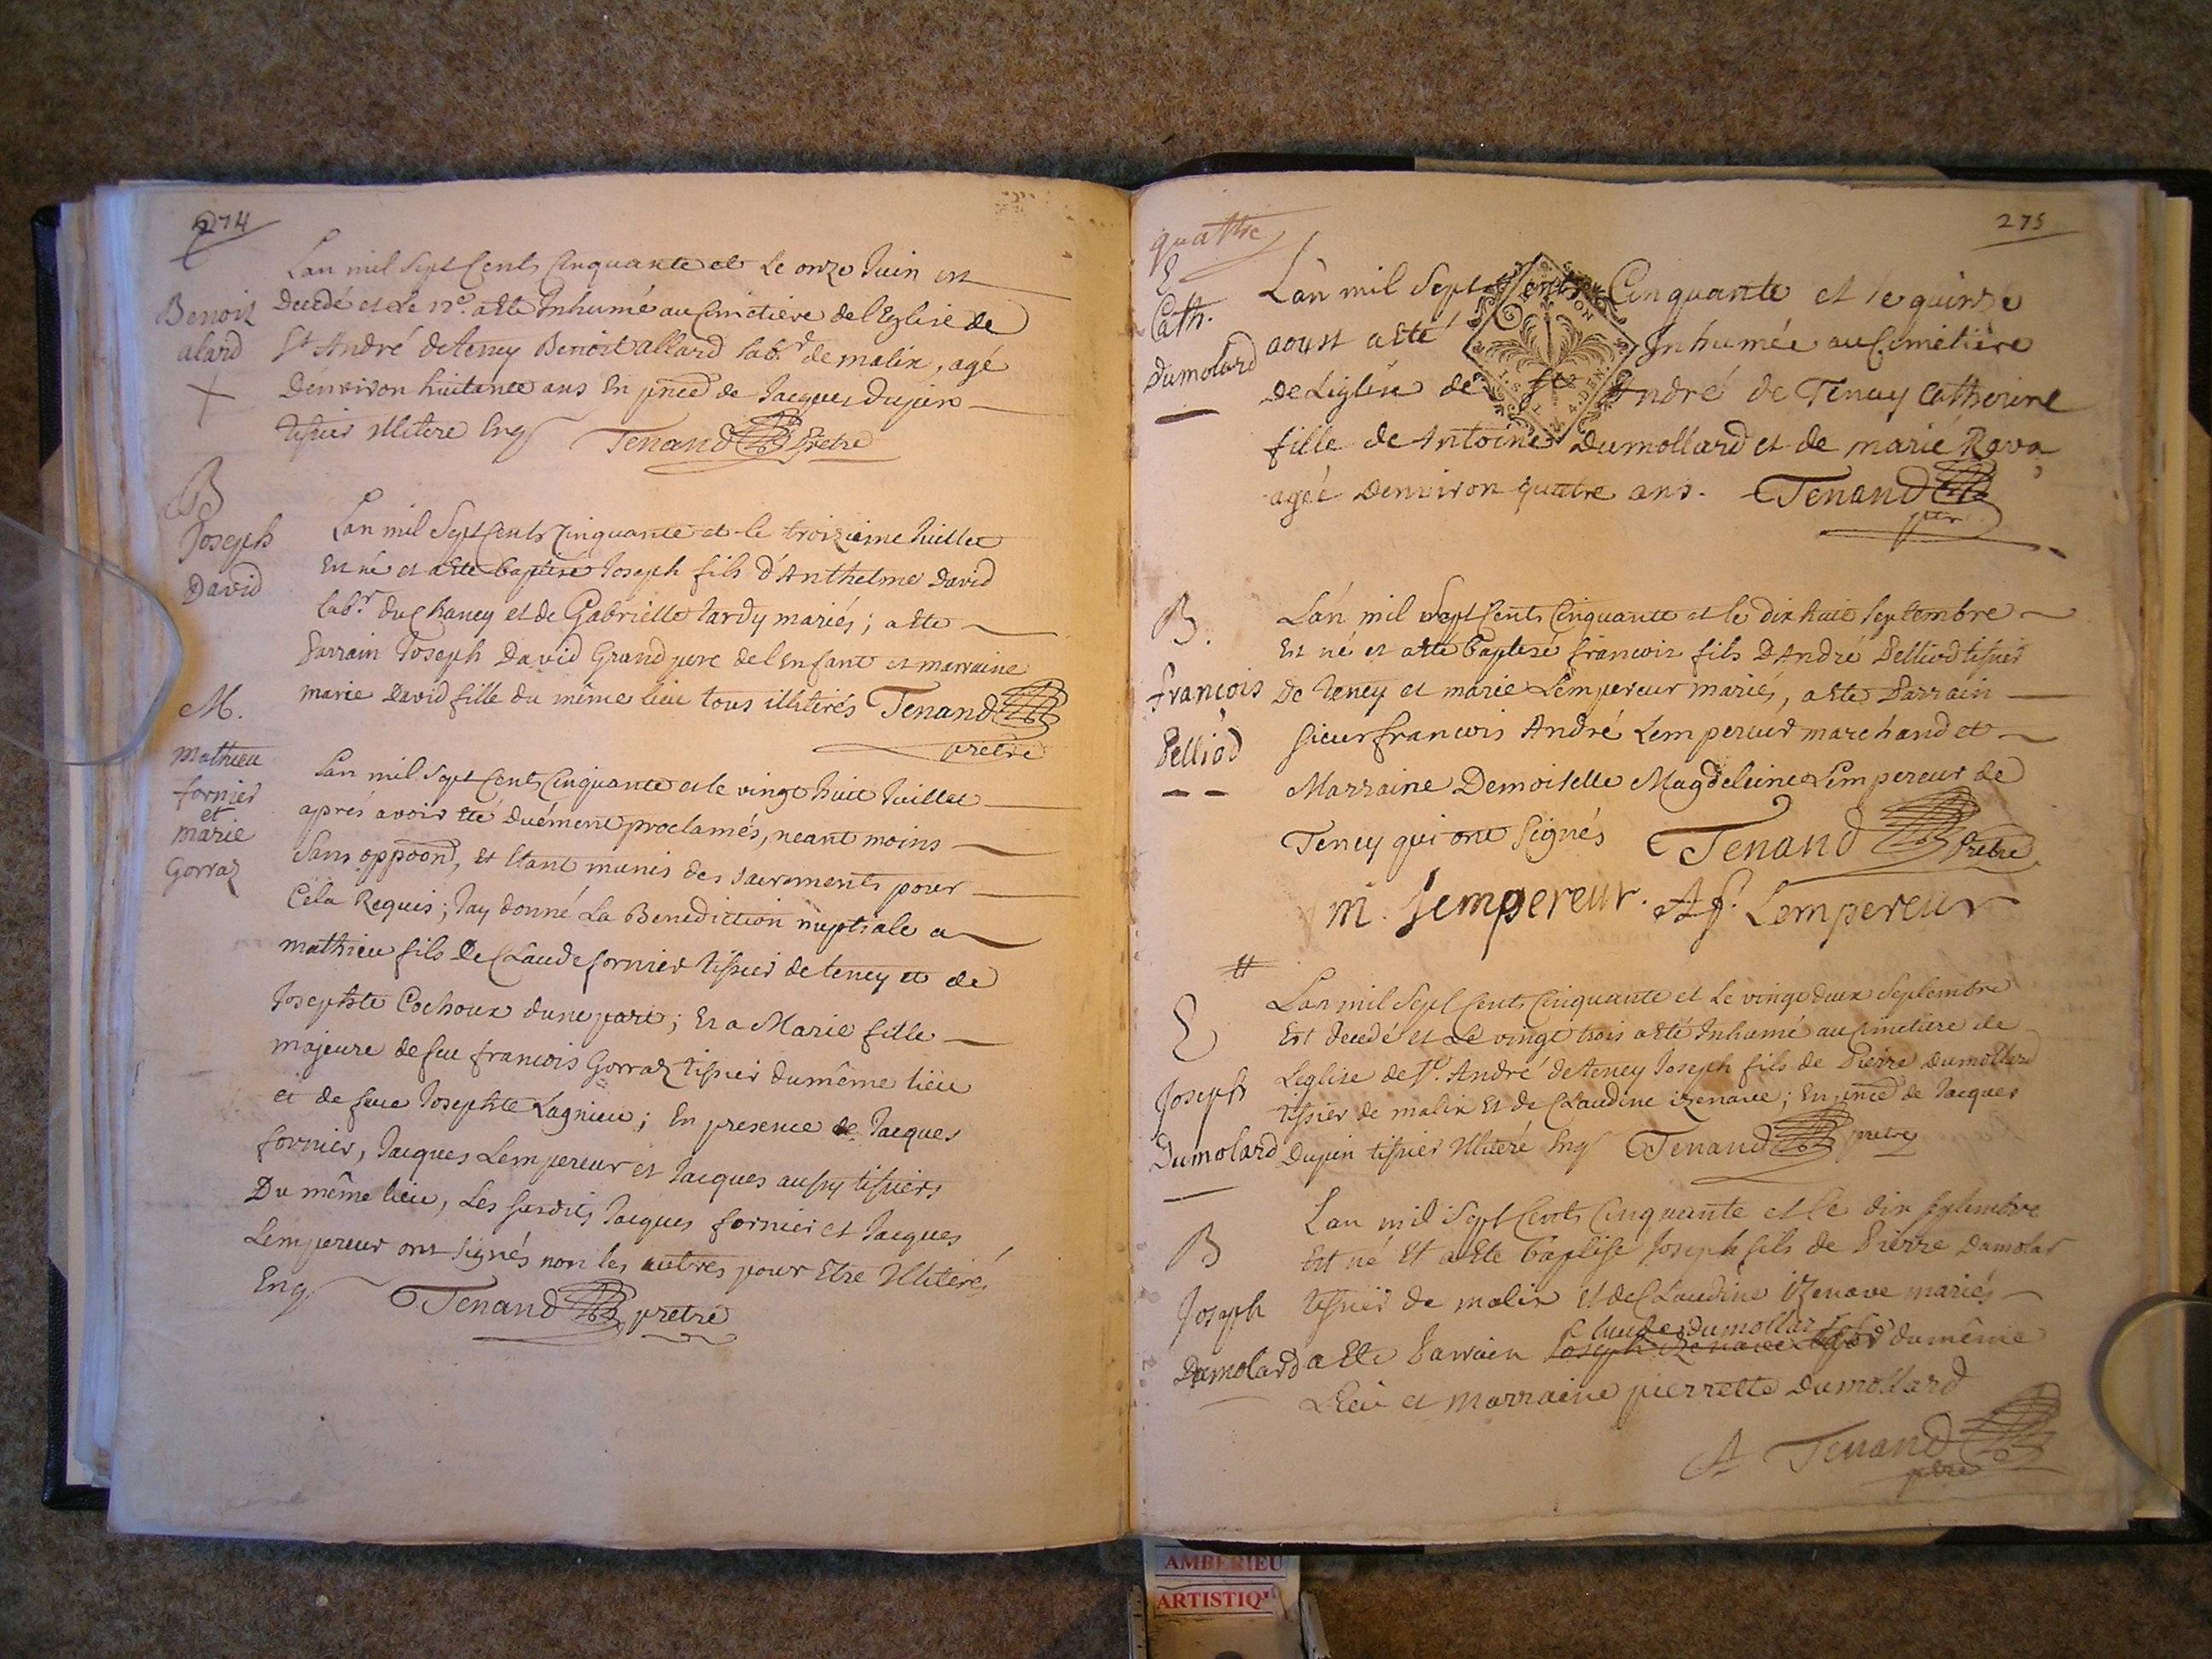 274
Benoit
alard
Lan mil Sept Cents Cinquante et Le onze Juin est
Decedé et Le 12e. a eté Inhumé au Cimetiere de l'Eglise de
St André de teney Benoit allard lab.r de malix, agé
Denviron huitante ans En pnce de Jacques Dupin
tissier illitere Enq Tenand Pretre
B
Joseph
David
Lan mil Sept Cents Cinquante et le troizieme Juillet
Est né et a eté Baptisé Joseph fils d'Anthelme David
lab.r du Chaney et de Gabrielle tardy mariés; a ete
Parrain Joseph David Grand pere de l'Enfant et marraine
marie David fille du même lieu tous illitérés Tenand
pretre
M.
Mathieu
fornier
et
marie
Gorraz
Lan mil Sept Cents Cinquante et le vingt huit Juillet
aprés avoir eté duément proclamés, neant moins
Sans oppoon, et Etant munis des sacrements pour
Céla Requis; Jay donné La Benediction nuptiale a
mathieu fils De Claude fornier tissier de teney et de
Josephte Cochoux dune part; Et a Marie fille
majeure de feu francois Gorraz tissier du même lieu
et de feue Josephte Lagnieu; En presence de Jacques
fornier, Jacques Lempereur et Jacques aussy tissiers
Du même lieu, Les susdits Jacques fornier et Jacques
Lempereur ont signés non les autres pour Etre illiterés
Enq Tenand pretre
275
quattre
E
Cath.
Dumolard
Lan mil Sept Cents Cinquante et le quinze
aoust a eté Inhumée au Cimetière
de Leglise de St André de Tenay Catherine
fille de Antoine Dumollard et de marie Rava
agée denviron quatre ans. Tenand
ptre
B.
françois
Pelliod
Lan mil Sept Cents Cinquante et le dix huit Septembre
Est né et a eté Baptisé francois fils D'André Pelliod tissier
De teney et marie Lempereur mariés, a ete Parrain
sieur francois André Lempereur marchand et
Marraine Demoiselle Magdeleine Lempereur de
Teney qui ont signés Tenand Prêtre
m. lempereur. Af. Lempereur
E
Joseph
Dumolard
Lan mil Sept Cents Cinquante et Le vingt deux Septembre
Est decedé et Le vingt trois a eté Inhumé au Cimetiere de
Leglise de St. André de teney Joseph fils de Pierre Dumollard
tissier de malix Et de Claudine izenave; En pnce de Jacques
Dupin tissier illiteré Enq Tenand prêtre
B
Joseph
Dumolard
Lan mil Sept Cents Cinquante et le dix Septembre
Est né Et a Eté baptise Joseph fils de Pierre Dumolar
tissier de malix et de Claudine izenave mariés
Claude dumollar
a Eté Parrain Joseph izenave tissier du même
Lieu et marraine pierrette Dumollard
A Tenand
ptre
AMBERIEU
ARTISTIQ